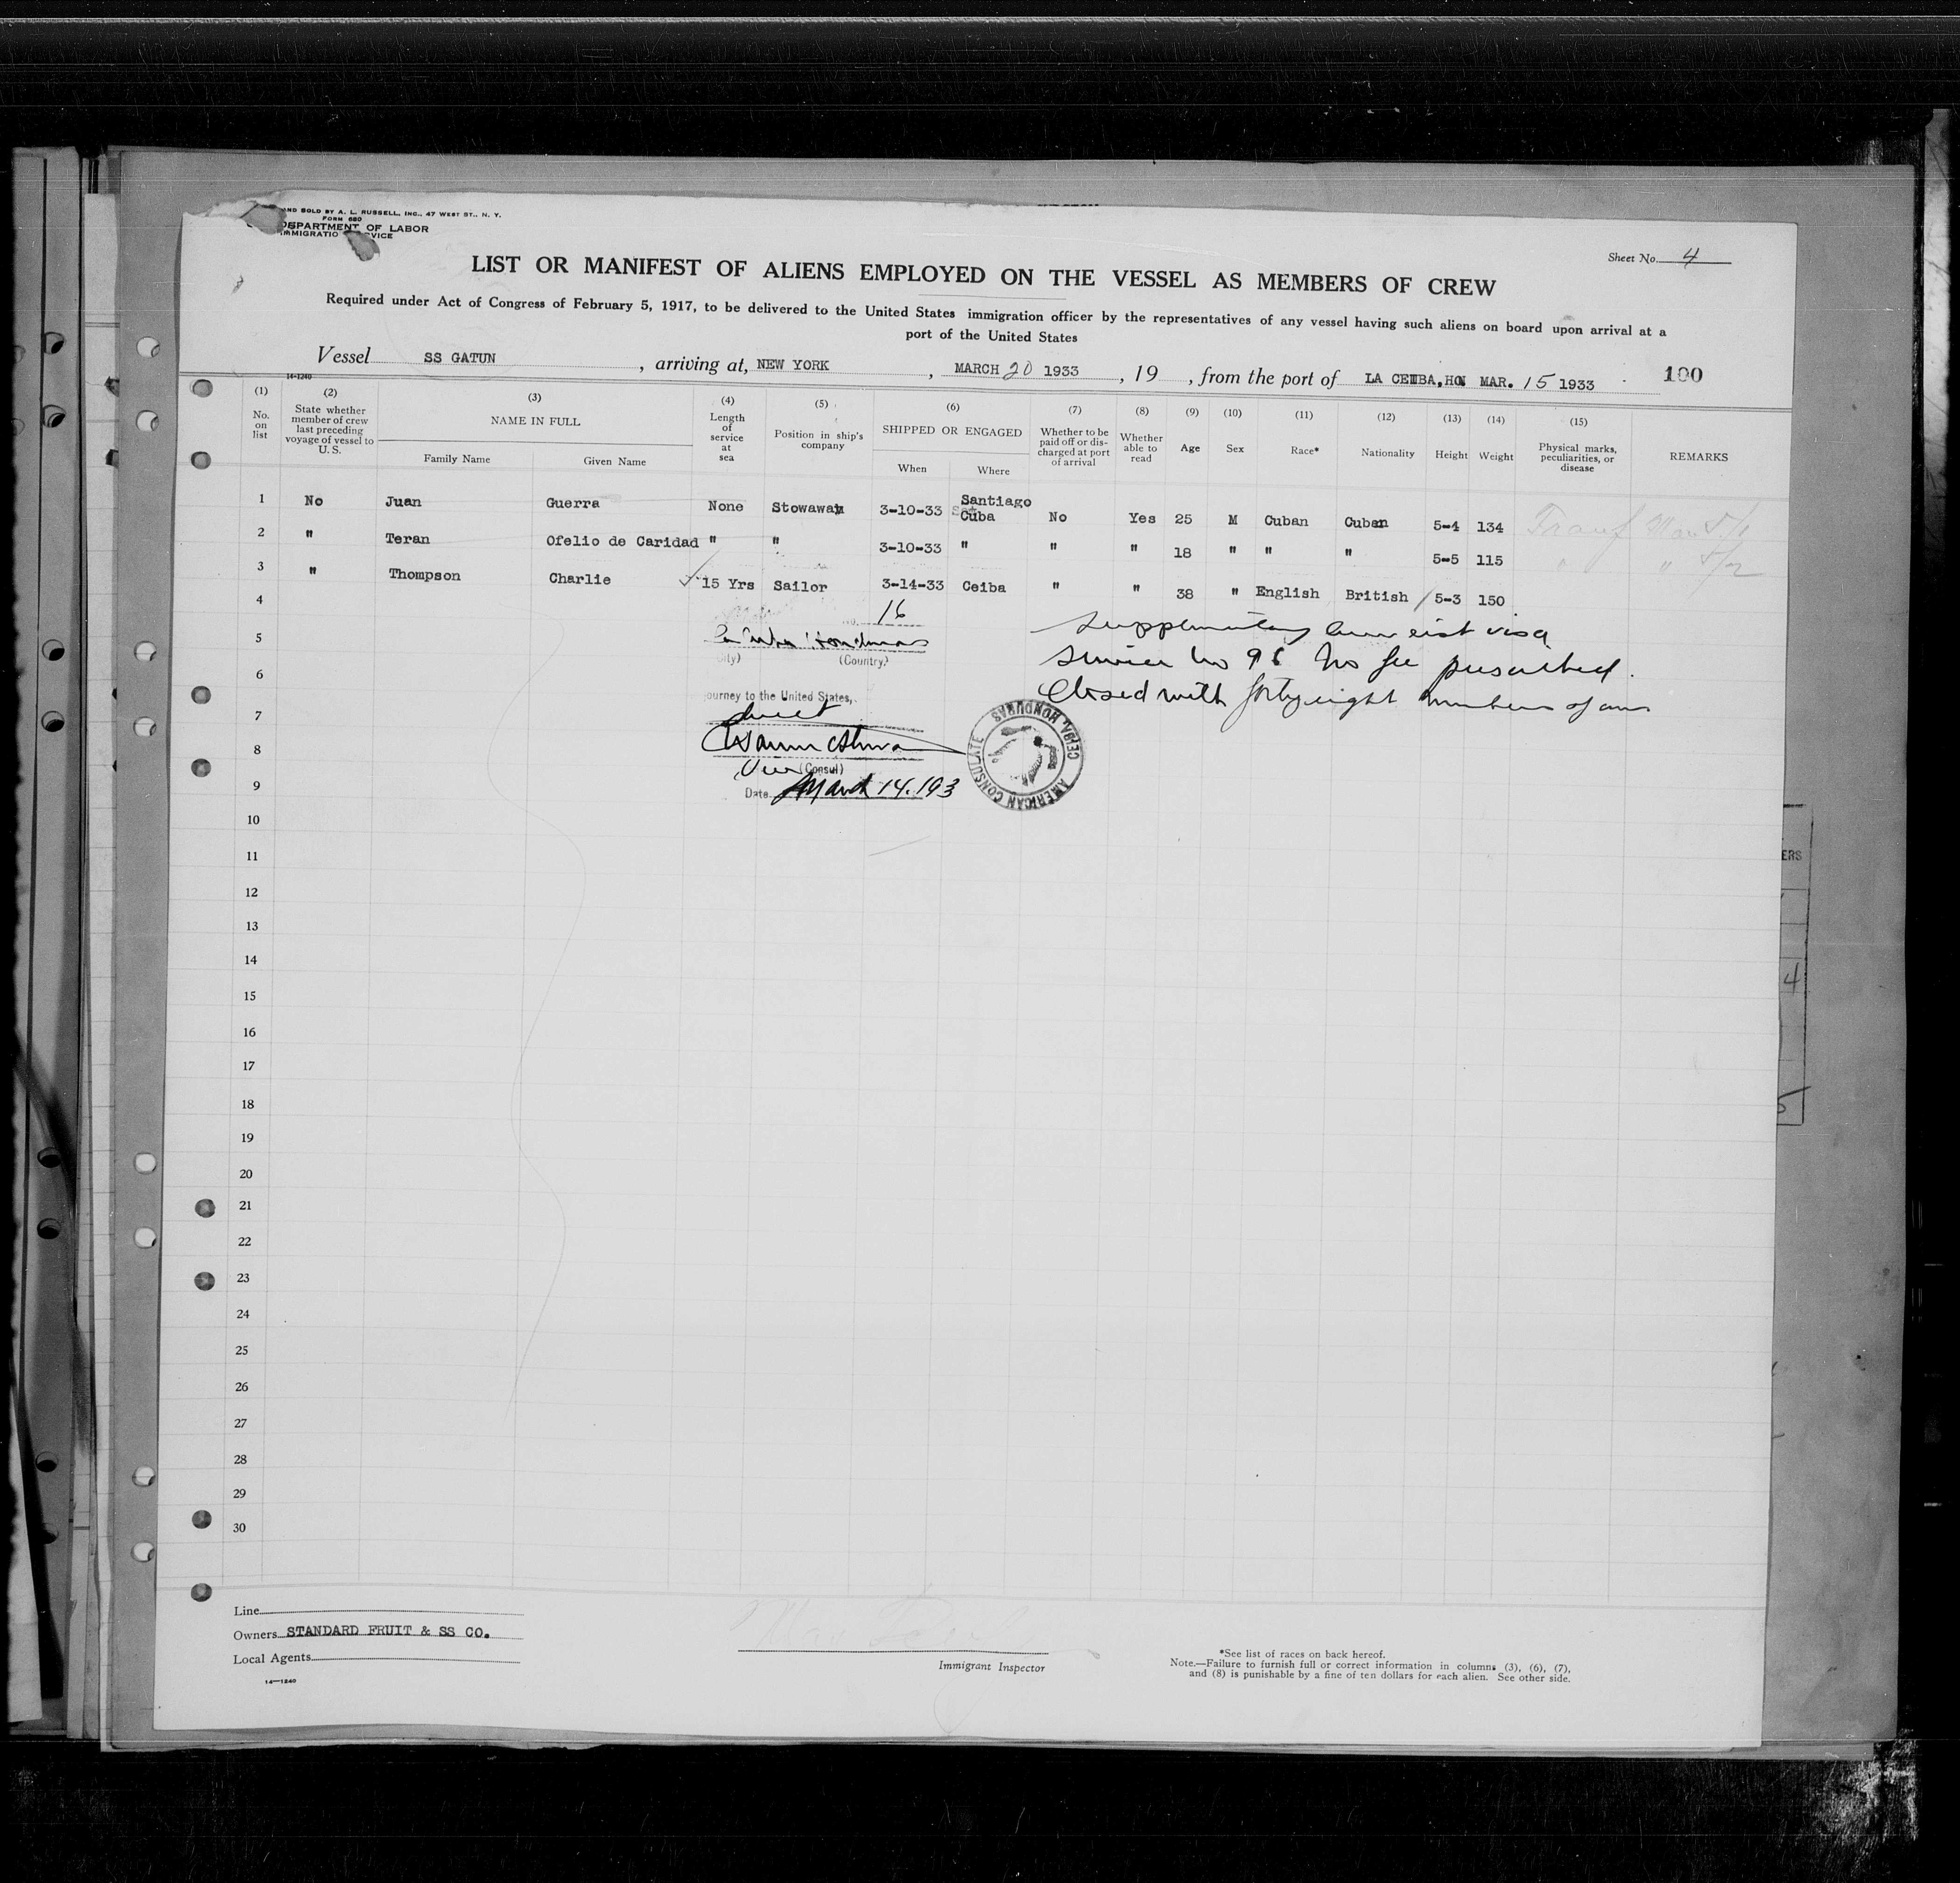 AND SOLD BY A. L. RUSSELL, INC., 47 WEST ST., N. Y.
FORM 680
DEPARTMENT OF LABOR
IMMIGRATIO VICE
Sheet No. 4
LIST OR MANIFEST OF ALIENS EMPLOYED ON THE VESSEL AS MEMBERS OF CREW
Required under Act of Congress of February 5, 1917, to be delivered to the United States immigration officer by the representatives of any vessel having such aliens on board upon arrival at a
port of the United States
Vessel SS GATUN , arriving at, NEW YORK , MARCH 20 1933 , 19 , from the port of LA CEIBA, HON MAR. 15 1933 100
14-1240
(1) No. on list
(2) State whether member of crew last preceding voyage of vessel to U. S.
(3) NAME IN FULL
Family Name Given Name
(4) Length of service at sea
(5) Position in ship's company
(6) SHIPPED OR ENGAGED
When Where
(7) Whether to be paid off or discharged at port of arrival
(8) Whether able to read
(9) Age
(10) Sex
(11) Race*
(12) Nationality
(13) Height
(14) Weight
(15) Physical marks, peculiarities, or disease
REMARKS
1 No Juan Guerra None Stowaway 3-10-33 Santiago Cuba No Yes 25 M Cuban Cuban 5-4 134
2 " Teran Ofelio de Caridad " " 3-10-33 " " " 18 " " " 5-5 115
3 " Thompson Charlie 15 Yrs Sailor 3-14-33 Ceiba " " 38 " English British 5-3 150
4
5
6
7
8
9
10
11
12
13
14
15
16
17
18
19
20
21
22
23
24
25
26
27
28
29
30
No. 16
La Ceiba Honduras
(Country)
ourney to the United States,
direct
Vice (Consul)
Date March 14. 193
Supplementary crew list visa
Service No 95 No fee prescribed.
Closed with forty eight members of crew
AMERICAN CONSULATE CEIBA, HONDURAS
Line
Owners STANDARD FRUIT & SS CO.
Local Agents
14—1240
Immigrant Inspector
*See list of races on back hereof.
Note.—Failure to furnish full or correct information in columns (3), (6), (7),
and (8) is punishable by a fine of ten dollars for each alien. See other side.
ERS
4
5